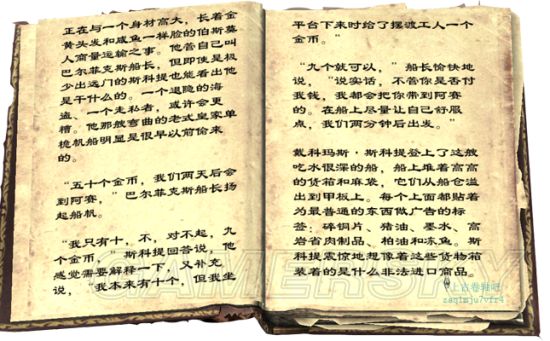 正在与一个身材高大，长着金
黄头发和咸鱼一样脸的伯斯莫
人商量运输之事。他管自己叫
巴尔菲克斯船长，但即使是极
少出远门的斯科提也能看出他
是干什么的。一个退隐的海
盗、一个走私者，或许会更
糟。他那艘弯曲的老式皇家单
桅帆船明显是很早以前偷来
的。
“五十个金币，我们两天后会
到阿赛，”巴尔菲克斯船长扬
起船帆。
“我只有十，不，对不起，九
个金币，”斯科提回答说，他
感觉需要解释一下，又补充
说，“我本来有十个，但我坐
平台下来时给了摆渡工人一个
金币。”
“九个就可以，”船长愉快地
说，“说实话，不管你是否付
我钱，我都会把你带到阿赛
的。在船上尽量让自己舒服
点，我们两分钟后出发。”
戴科玛斯·斯科提登上了这艘
吃水很深的船，船上堆着高高
的货箱和麻袋，它们从船仓溢
出到甲板上。每个上面都贴着
为最普通的东西做广告的标
签：碎铜片、猪油、墨水、高
岩省肉制品、柏油和冻鱼。斯
科提震惊地想像着这些货物箱
装着的是什么非法进口商品。
GAMERSKY
上古卷轴吧
zaq1mju7vfr4